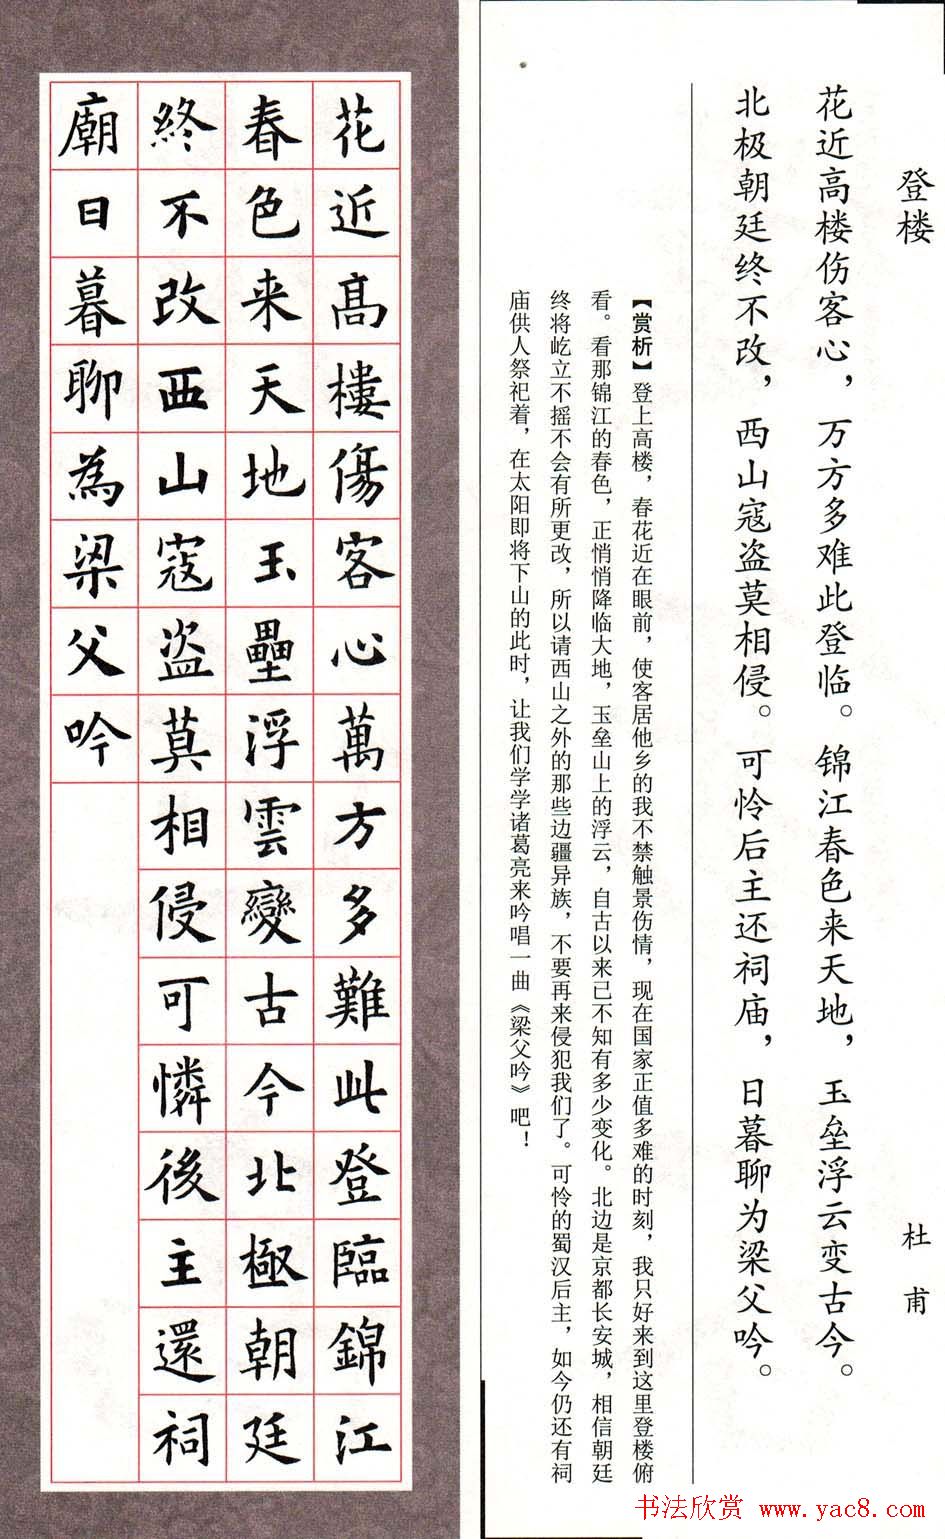 登楼
杜甫
花近高楼伤客心，万方多难此登临。锦江春色来天地，玉垒浮云变古今。
北极朝廷终不改，西山寇盗莫相侵。可怜后主还祠庙，日暮聊为梁父吟。
【赏析】登上高楼，春花近在眼前，使客居他乡的我不禁触景伤情，现在国家正值多难的时刻，我只好来到这里登楼俯
看。看那锦江的春色，正悄悄降临大地，玉垒山上的浮云，自古以来已不知有多少变化。北边是京都长安城，相信朝廷
终将屹立不摇不会有所更改，所以请西山之外的那些边疆异族，不要再来侵犯我们了。可怜的蜀汉后主，如今仍还有祠
庙供人祭祀着，在太阳即将下山的此时，让我们学学诸葛亮来吟唱一曲《梁父吟》吧！
花近髙樓傷客心萬方多難此登臨錦江
春色来天地玉壘浮雲變古今北極朝廷
終不改西山寇盗莫相侵可憐後主還祠
廟日暮聊為梁父吟
书法欣赏 www.yac8.com